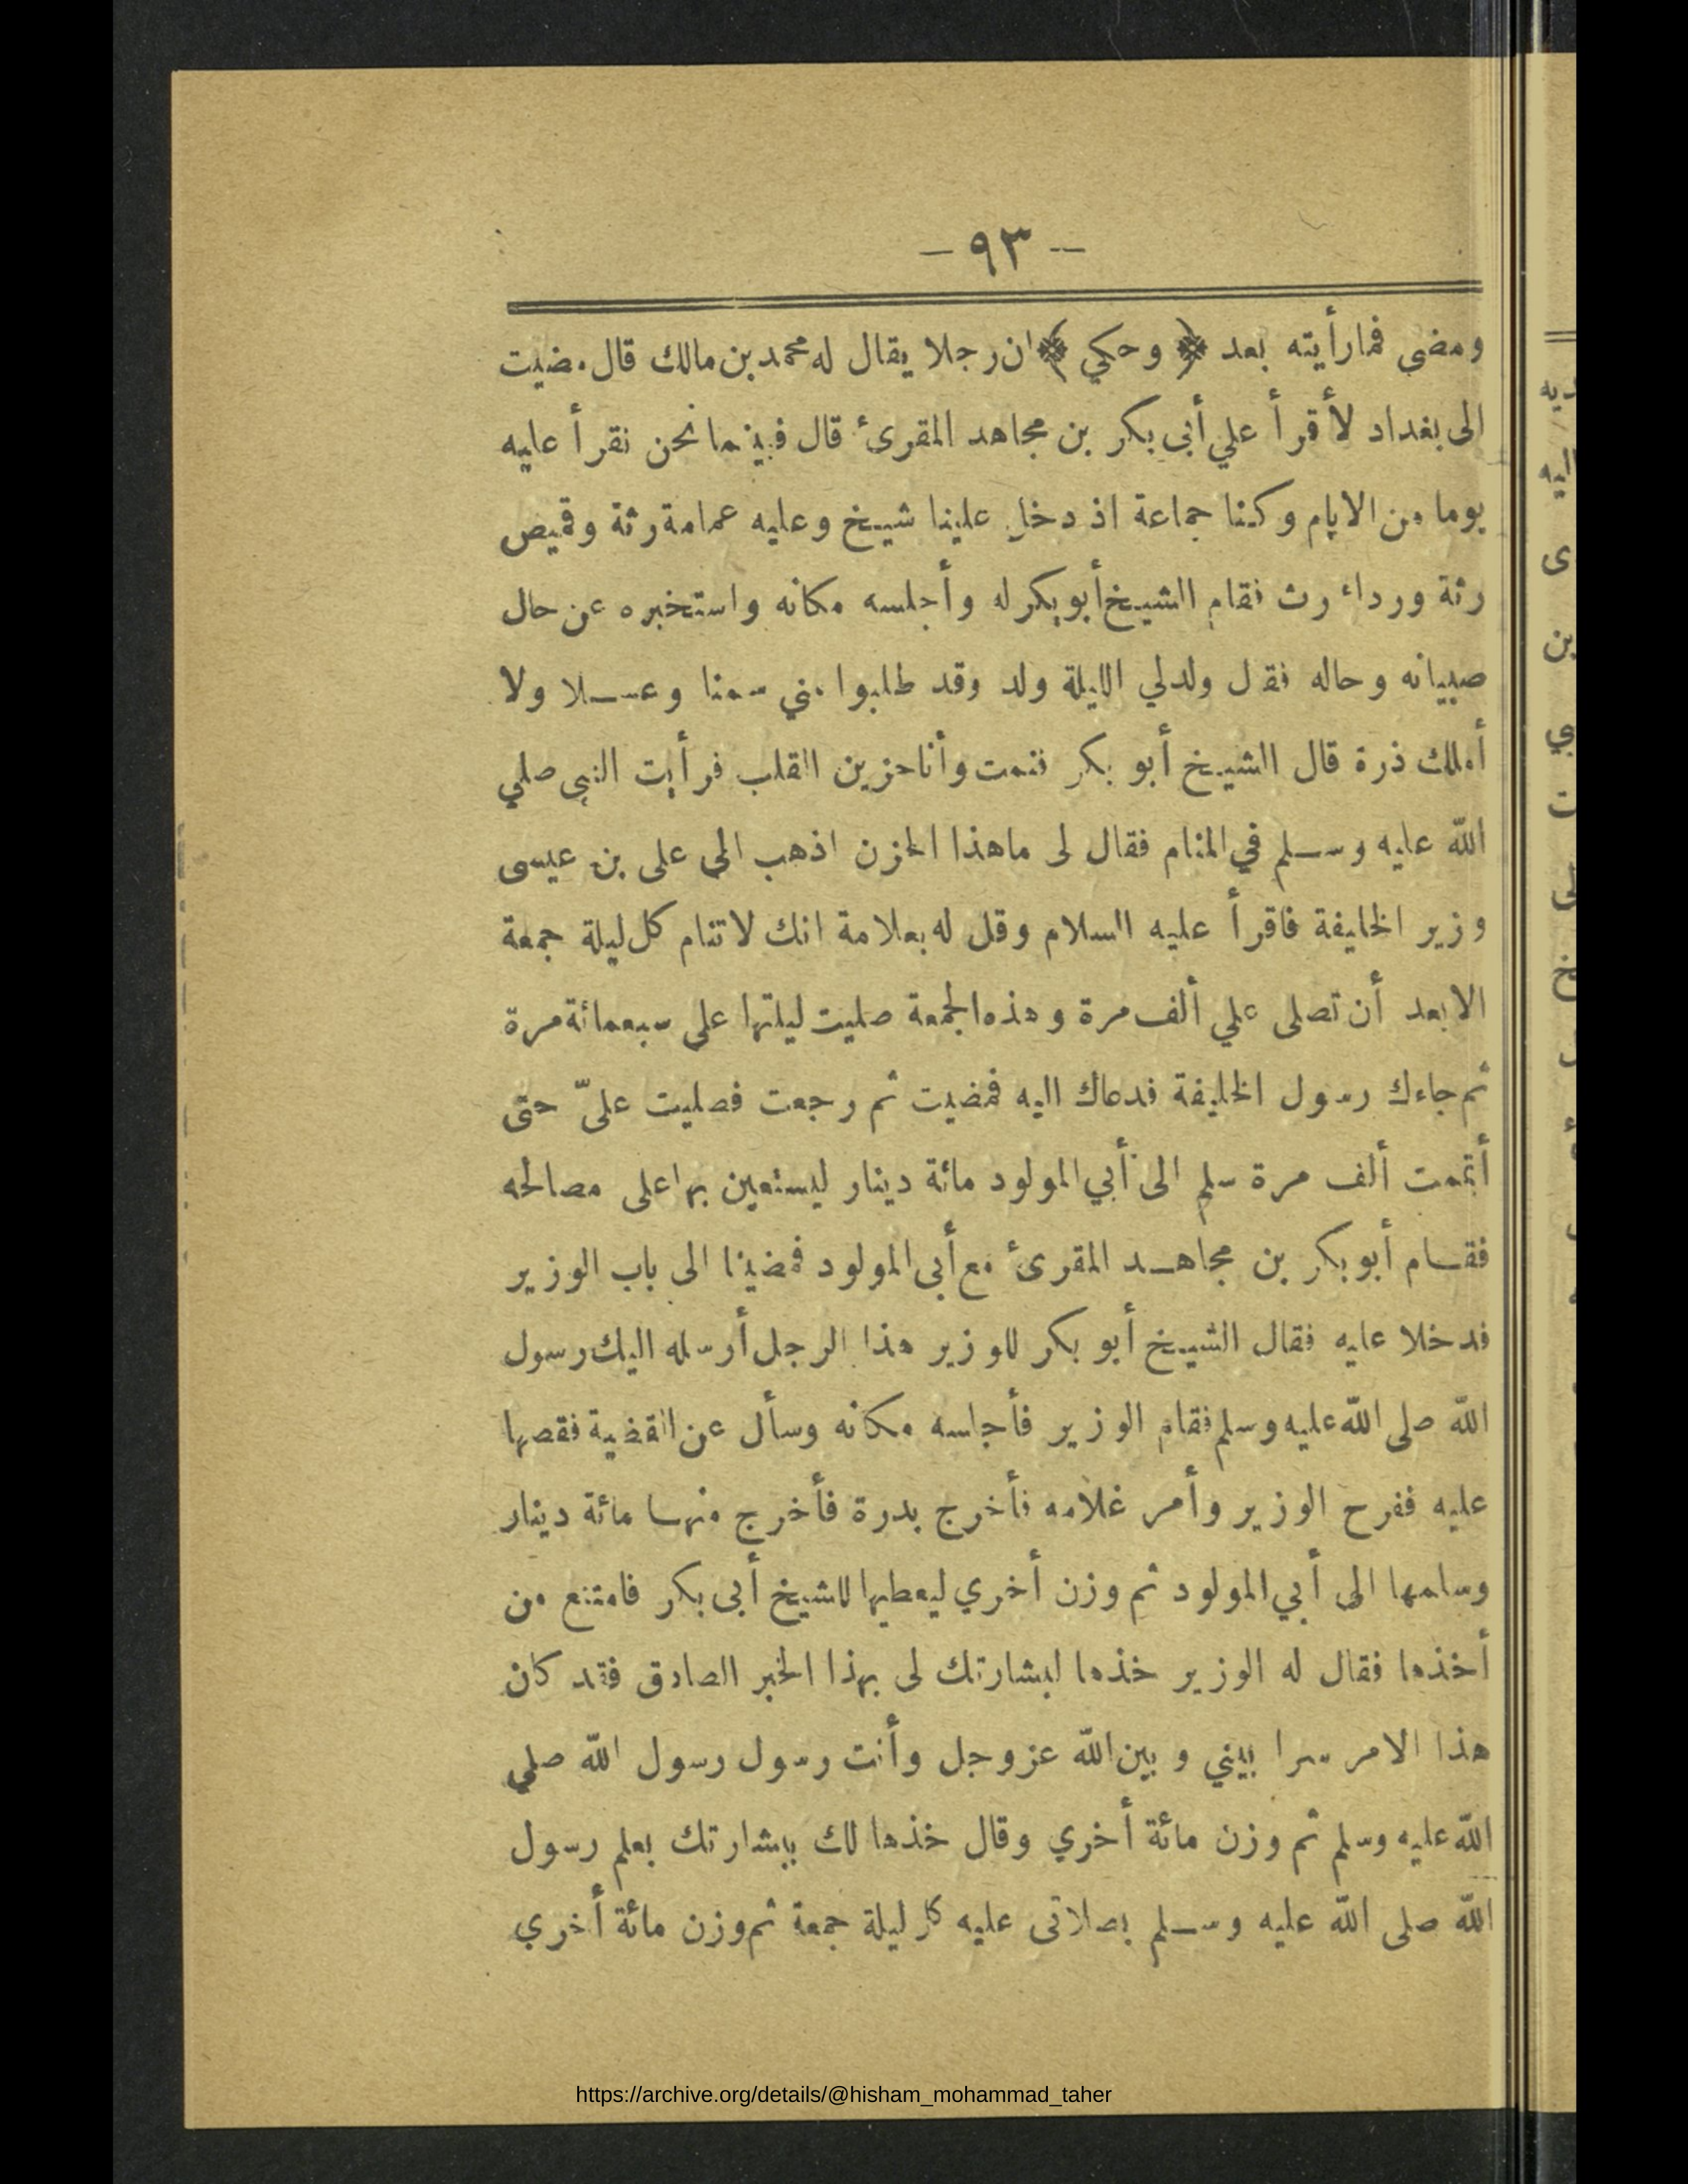 — ٩٣ —
ومضى فما رأيته بعد ﴿ وحكي ﴾ ان رجلا يقال له محمد بن مالك قال مضيت
الى بغداد لأقرأ علي أبى بكر بن مجاهد المقرئ قال فبينما نحن نقرأ عليه
يوما من الايام وكنا جماعة اذ دخل علينا شيخ وعليه عمامة رثة وقميص
رثة ورداء رث فقام الشيخ أبو بكر له وأجلسه مكانه واستخبره عن حال
صبيانه وحاله فقال ولد لي الليلة ولد وقد طلبوا مني سمنا وعسلا ولا
أملك ذرة قال الشيخ أبو بكر فنمت وأنا حزين القلب فرأيت النبى صلي
الله عليه وسلم في المنام فقال لى ما هذا الحزن اذهب الى على بن عيسى
وزير الخليفة فاقرأ عليه السلام وقل له بعلامة انك لا تنام كل ليلة جمعة
الا بعد أن تصلى علي ألف مرة وهذه الجمعة صليت ليلتها على سبعمائة مرة
ثم جاءك رسول الخليفة فدعاك اليه فمضيت ثم رجعت فصليت علىّ حتى
أتممت ألف مرة سلم الى أبي المولود مائة دينار ليستعين بها على مصالحه
فقام أبو بكر بن مجاهد المقرئ مع أبى المولود فمضينا الى باب الوزير
فدخلا عليه فقال الشيخ أبو بكر للوزير هذا الرجل أرسله اليك رسول
الله صلى الله عليه وسلم فقام الوزير فأجلسه مكانه وسأل عن القضية فقصها
عليه ففرح الوزير وأمر غلامه فأخرج بدرة فأخرج منها مائة دينار
وسلمها الى أبي المولود ثم وزن أخري ليعطيها للشيخ أبى بكر فامتنع من
أخذها فقال له الوزير خذها لبشارتك لى بهذا الخبر الصادق فقد كان
هذا الامر سرا بيني وبين الله عز وجل وأنت رسول رسول الله صلي
الله عليه وسلم ثم وزن مائة أخري وقال خذها لك ببشارتك بعلم رسول
الله صلى الله عليه وسلم بصلاتى عليه كل ليلة جمعة ثم وزن مائة أخري
https://archive.org/details/@hisham_mohammad_taher